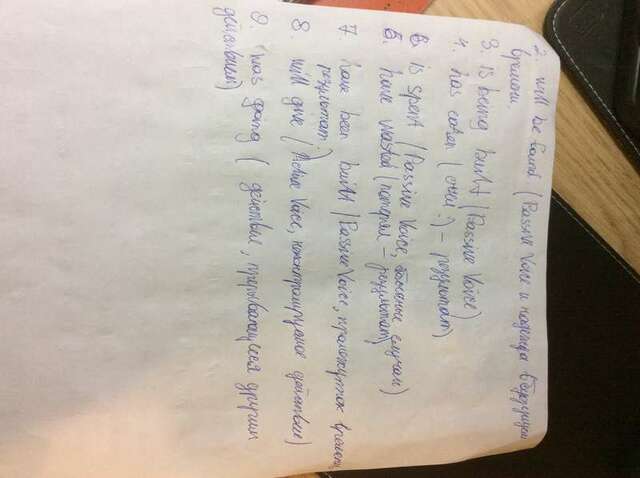 2. will be found. (Passive Voice и надежда в будущем
времени.
3. is being built (Passive Voice)
4. has eaten ( съел ) – результат)
6. is spent (Passive Voice, обычные случаи)
5. have wasted (потерял – результат)
7. have been built (Passive Voice, промежуток времени,
результат.)
8. will give (Active Voice, неконтролируемое действие)
9. was going ( действие, прерывающееся другим
действием)